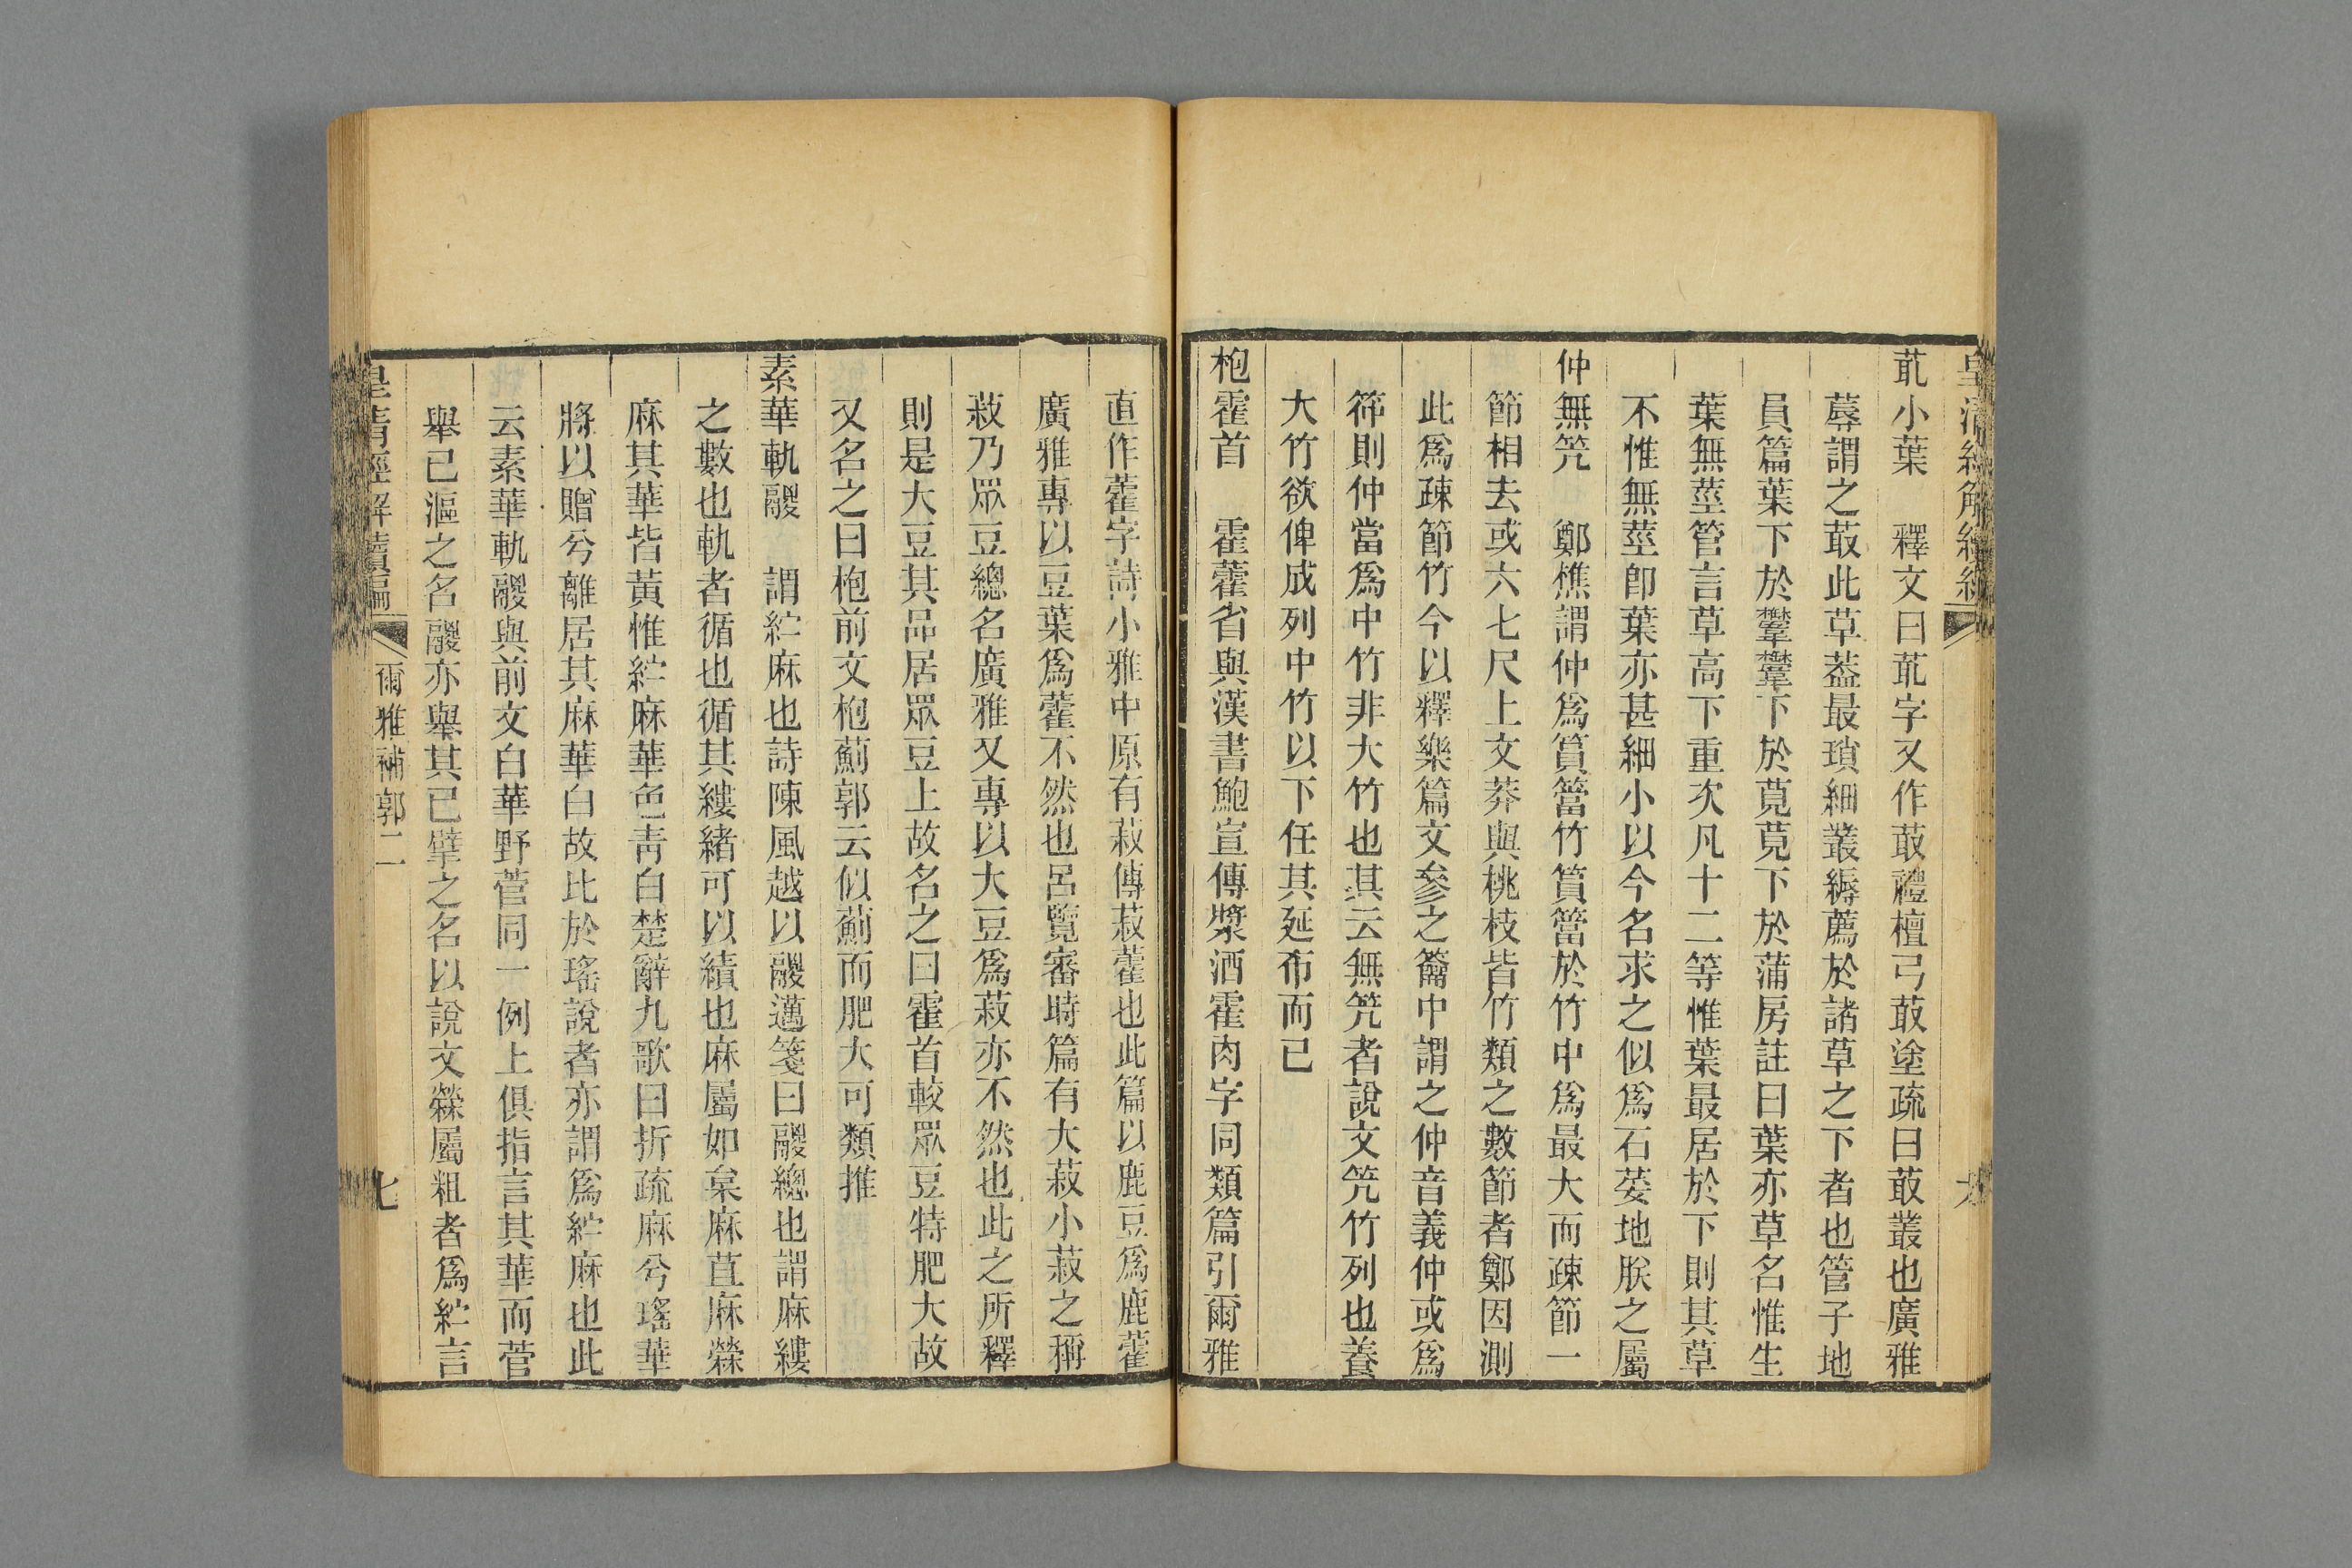 皇清經解續編
菆小葉　釋文曰菆字又作菆禮檀弓菆塗疏曰菆叢也廣雅
蓐謂之菆此草葢最瑣細叢縟薦於諸草之下者也管子地
員篇葉下於䕎䕎下於莧莧下於蒲房註曰葉亦草名惟生
葉無莖管言草高下重次凡十二等惟葉最居於下則其草
不惟無莖卽葉亦甚細小以今名求之似爲石荽地朕之屬
仲無笐　鄭樵謂仲爲篔簹竹篔簹於竹中爲最大而疎節一
節相去或六七尺上文莽與桃枝皆竹類之數節者鄭因測
此爲疎節竹今以釋樂篇文參之籥中謂之仲音義仲或爲
筗則仲當爲中竹非大竹也其云無笐者說文笐竹列也養
大竹欲俾成列中竹以下任其延布而已
枹霍首　霍藿省與漢書鮑宣傳漿酒霍肉字同類篇引爾雅
直作藿字詩小雅中原有菽傳菽藿也此篇以鹿豆爲鹿藿
廣雅專以豆葉爲藿不然也呂覽審時篇有大菽小菽之稱
菽乃眾豆總名廣雅又專以大豆爲菽亦不然也此之所釋
則是大豆其品居眾豆上故名之曰霍首較眾豆特肥大故
又名之曰枹前文枹薊郭云似薊而肥大可類推
素華軌鬷　謂紵麻也詩陳風越以鬷邁箋曰鬷總也謂麻縷
之數也軌者循也循其縷緒可以績也麻屬如枲麻苴麻檾
麻其華皆黃惟紵麻華色靑白楚辭九歌曰折疏麻兮瑤華
將以贈兮離居其麻華白故比於瑤說者亦謂爲紵麻也此
云素華軌鬷與前文白華野菅同一例上俱指言其華而菅
舉已漚之名鬷亦舉其已擘之名以說文檾屬粗者爲紵言
皇清經解續編　爾雅補郭二　七